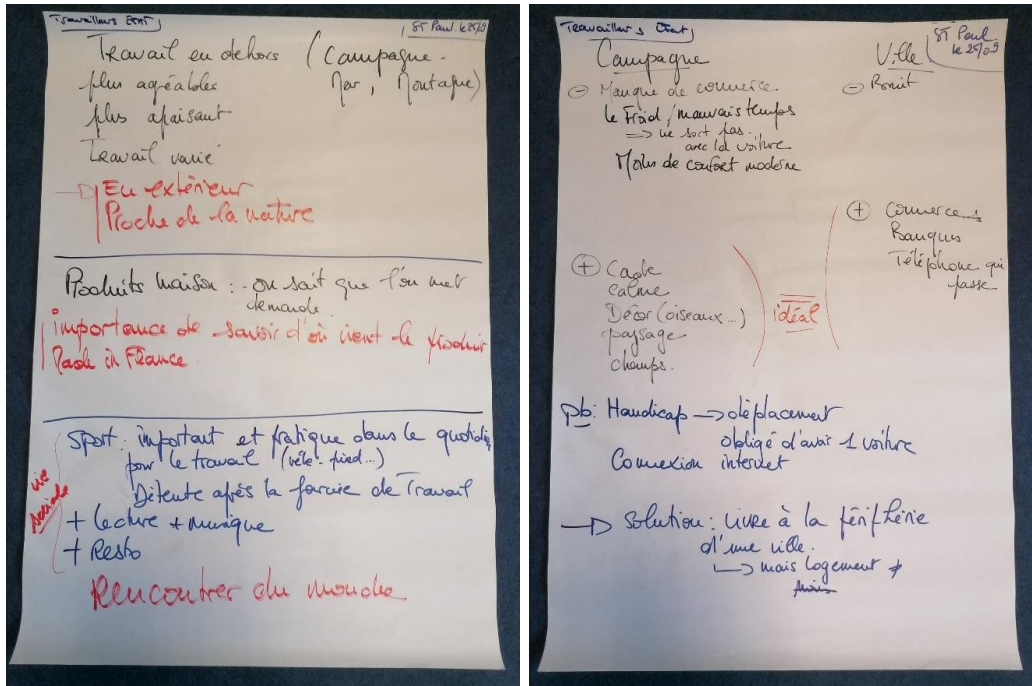 Travailleurs ESAT
ST Paul le 25/09
Travail en dehors (Campagne.
Mer, Montagne)
plus agréables
plus apaisant
Travail varié
En extérieur
Proche de la nature
Produits maison : - on sait que l'on met
demande.
importance de savoir d'où vient le produit
Made in France.
Sport : important et pratique dans le quotidien
pour le travail (vélo - pied...)
Détente après la journée de Travail
+ Lecture + musique
+ Resto
vie
sociale
Rencontrer du monde
Travailleurs Esat
ST Paul
le 25/09
Campagne
Ville
- Manque de commerce.
- Bruit
le Froid / mauvais temps
=> ne sort pas.
avec la voiture
Moins de confort moderne
+ Commerces
Banques
Téléphone qui
passe
+ Cadre
calme
Décor (oiseaux...)
paysage
champs.
idéal
pb : Handicap → déplacement
obligé d'avoir 1 voiture
Connexion internet
→ Solution : Vivre à la périphérie
d'une ville.
→ mais logement ≠